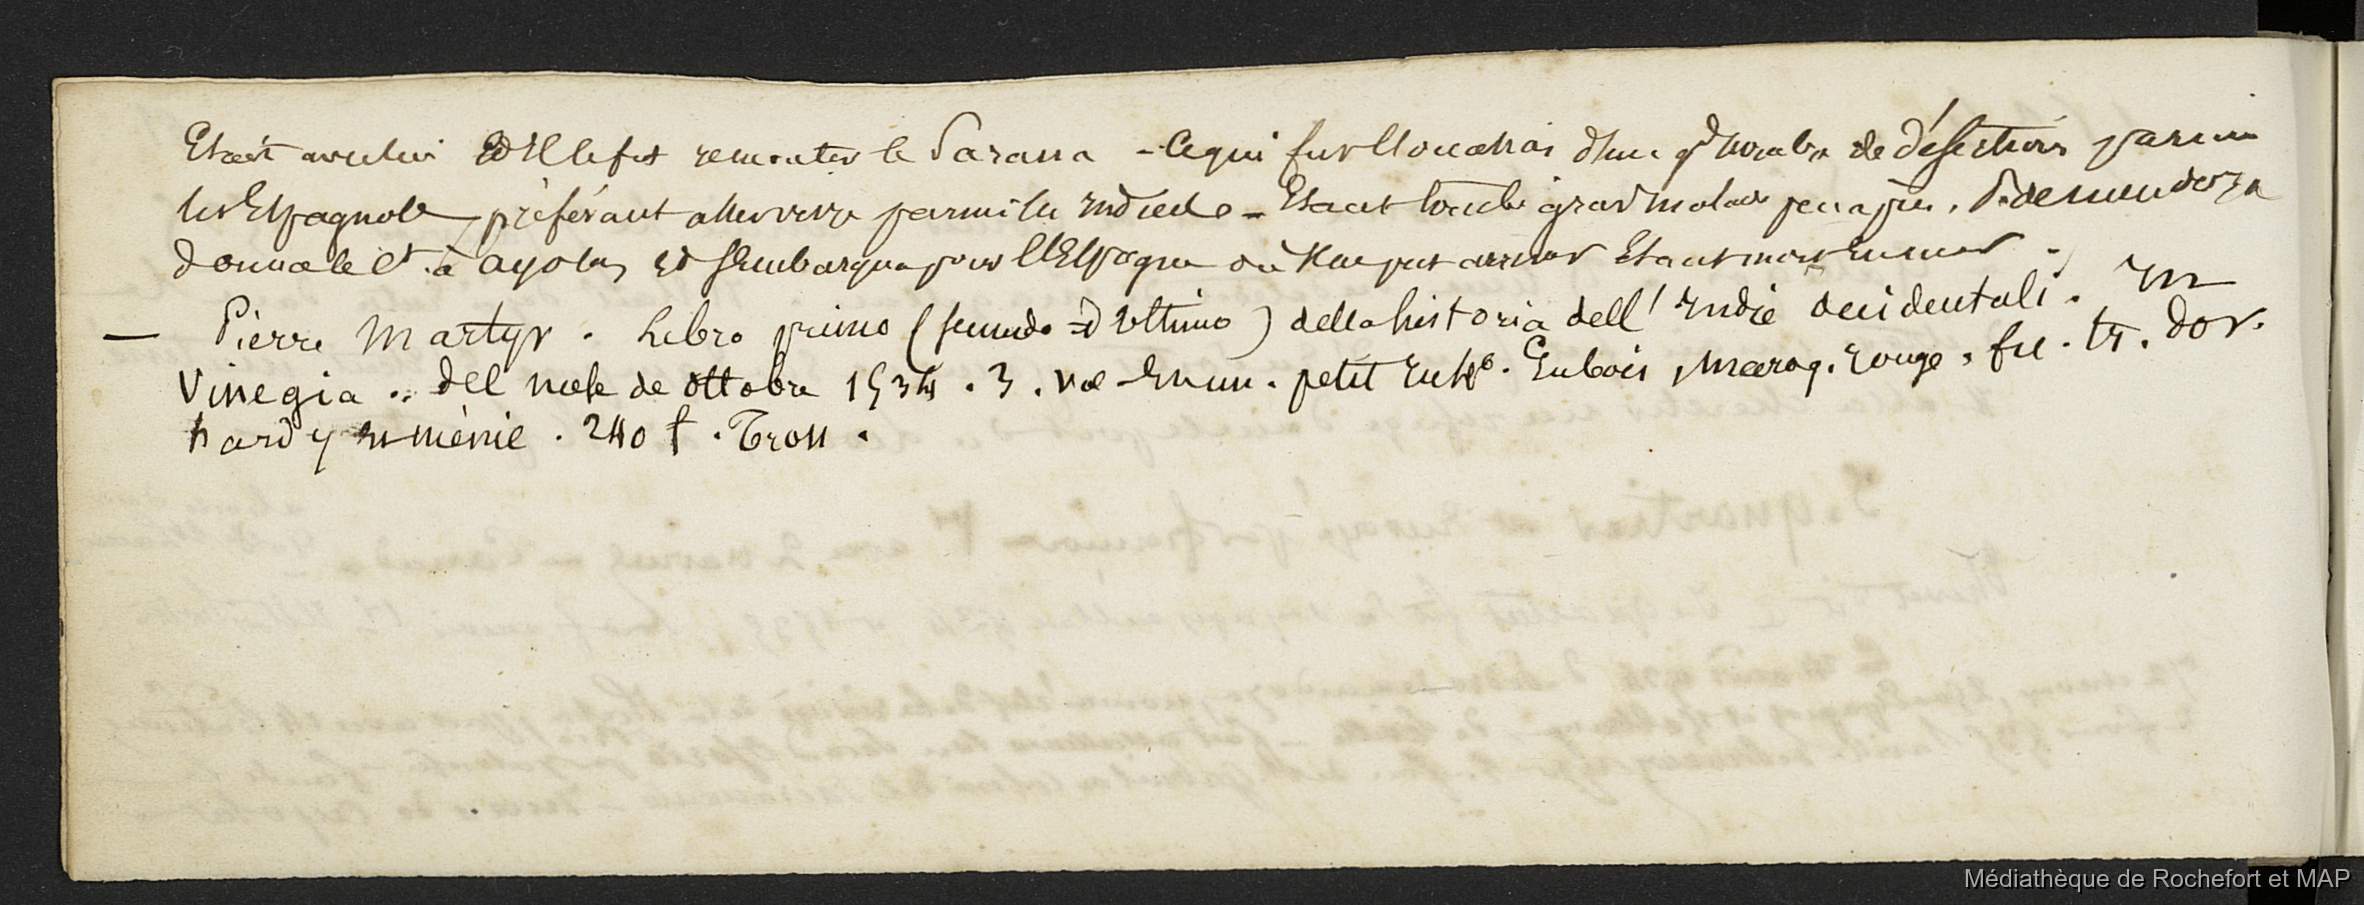 Etait avec lui et il le fit remonter le Parana - Ce qui fut l'occasion d'un gd nombre de désertions parmi
les Espagnols, préférant aller vivre parmi les indiens - Etant tombé grav. malade peu après. P. de mendoza
donna le Ct. à ayolas, et s'embarqua pour l'Espagne où il ne put arriver Etant mort En mer.
— Pierre Martyr. Libro primo (secundo et Ultimo) della historia dell' indie occidentali. in
Vinegia. del mese de ottobre 1534. 3. en un. petit in 4o. En bois, Maroq. rouge, fil. tr. dor.
hardy mènie. 240 f. Tross.
Médiathèque de Rochefort et MAP